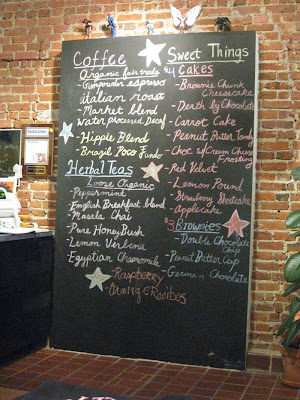 Coffee
Organic fair trade
- Gunpowder espresso
italian roast
Market blend
water processed Decaf
- Hippie Blend
- Brazil Poco Fundo
Herbal Teas
Loose Organic
- Peppermint
English Breakfast blend
- Masala Chai
- Pure HoneyBush
- Lemon Verbena
- Egyptian Chamomile
- Raspberry
- Orange Rooibos
Sweet Things
Cakes
- Brownie Chunk
Cheesecake
- Death by Chocolate
- Carrot Cake
- Peanut Butter Tandy
- Choc w/Cream Cheese
Frosting
- Red Velvet
- Lemon Pound
- Strawberry Shortcake
- Applecake
Brownies
- Double Chocolate
Chip
- Peanut Butter Cup
- German Chocolate